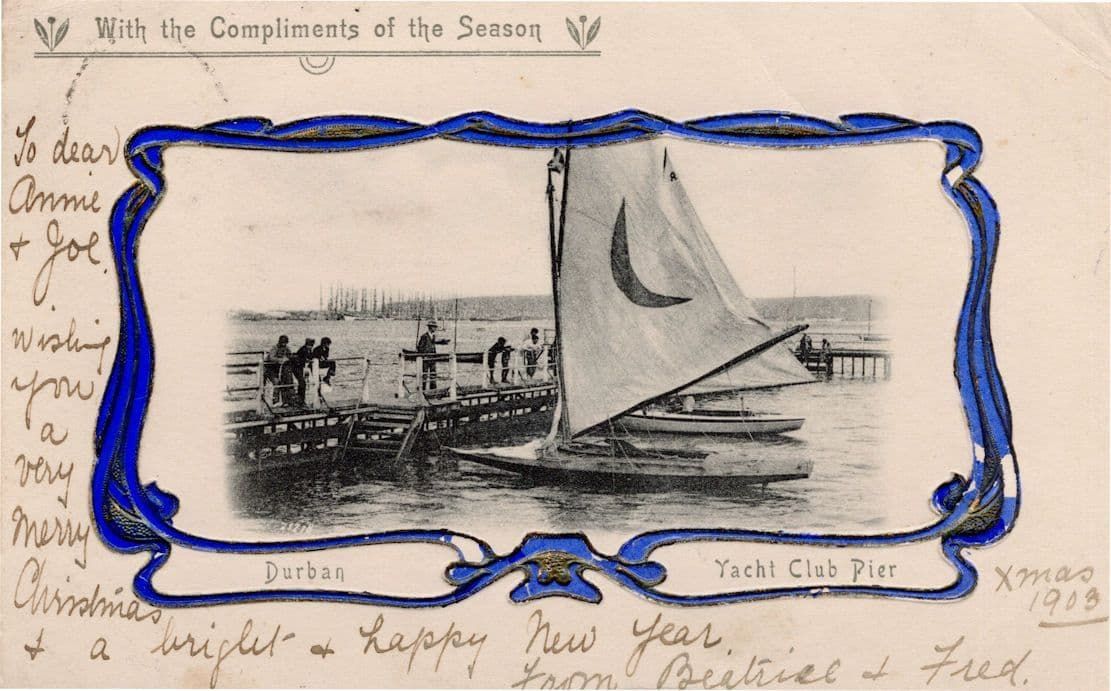 With the Compliments of the Season
To dear
Annie
& Joe.
wishing
you
a
very
Merry
Christmas
& a bright & happy New Year
From Beatrice & Fred.
Durban
Yacht Club Pier
Xmas
1903